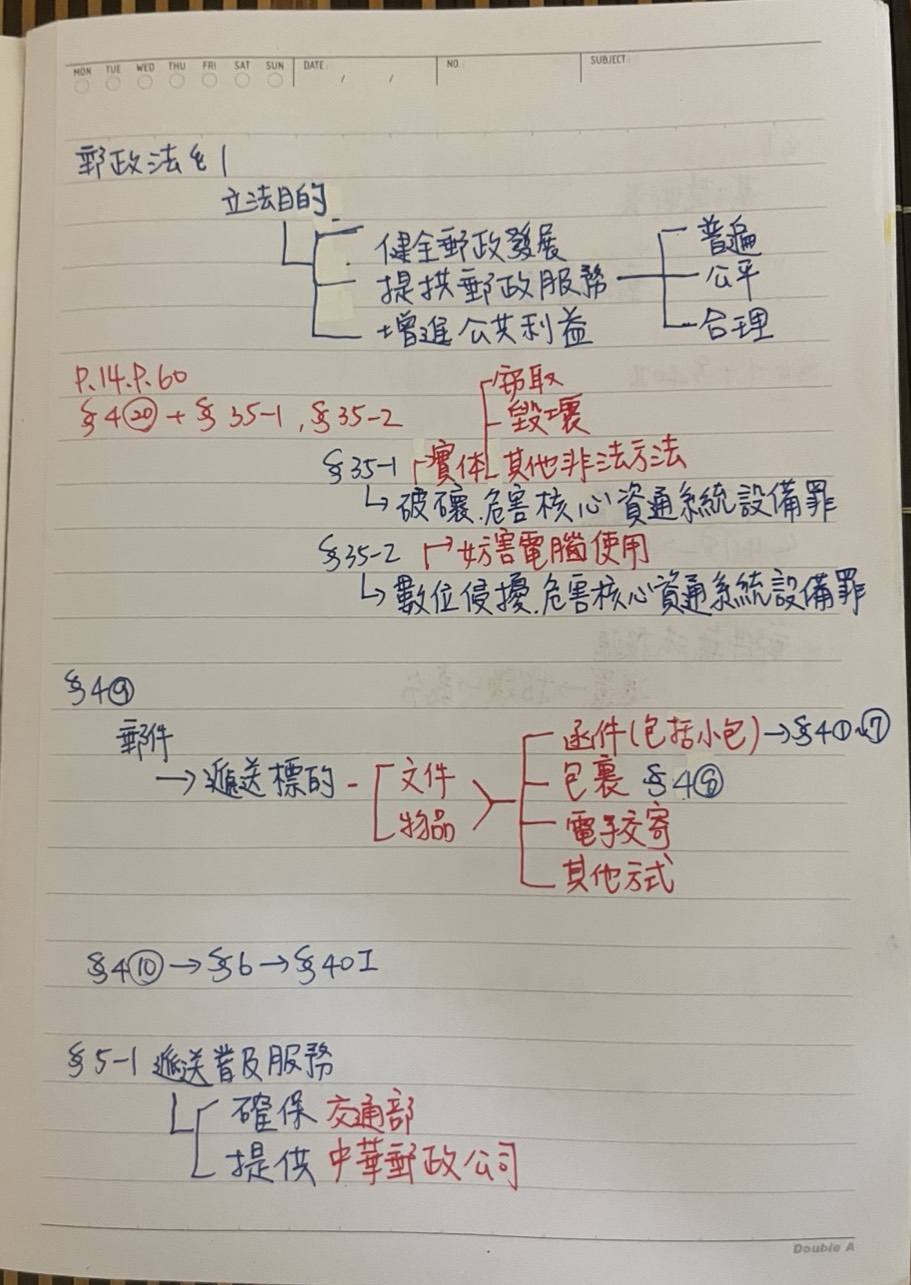 MON TUE WED THU FRI SAT SUN DATE: / / NO: SUBJECT:
郵政法§1
立法目的
健全郵政發展
提供郵政服務 普遍 公平 合理
增進公共利益
P.14.P.60
§4⑳+§35-1,§35-2
竊取
毀壞
§35-1 實體 其他非法方法
↳破壞.危害核心資通系統設備罪
§35-2 妨害電腦使用
↳數位侵擾.危害核心資通系統設備罪
§4⑨
郵件
→遞送標的-文件 物品
函件(包括小包)→§4①~⑦
包裹 §4⑧
電子交寄
其他方式
§4⑩→§6→§40I
§5-1 遞送普及服務
確保 交通部
提供 中華郵政公司
Double A